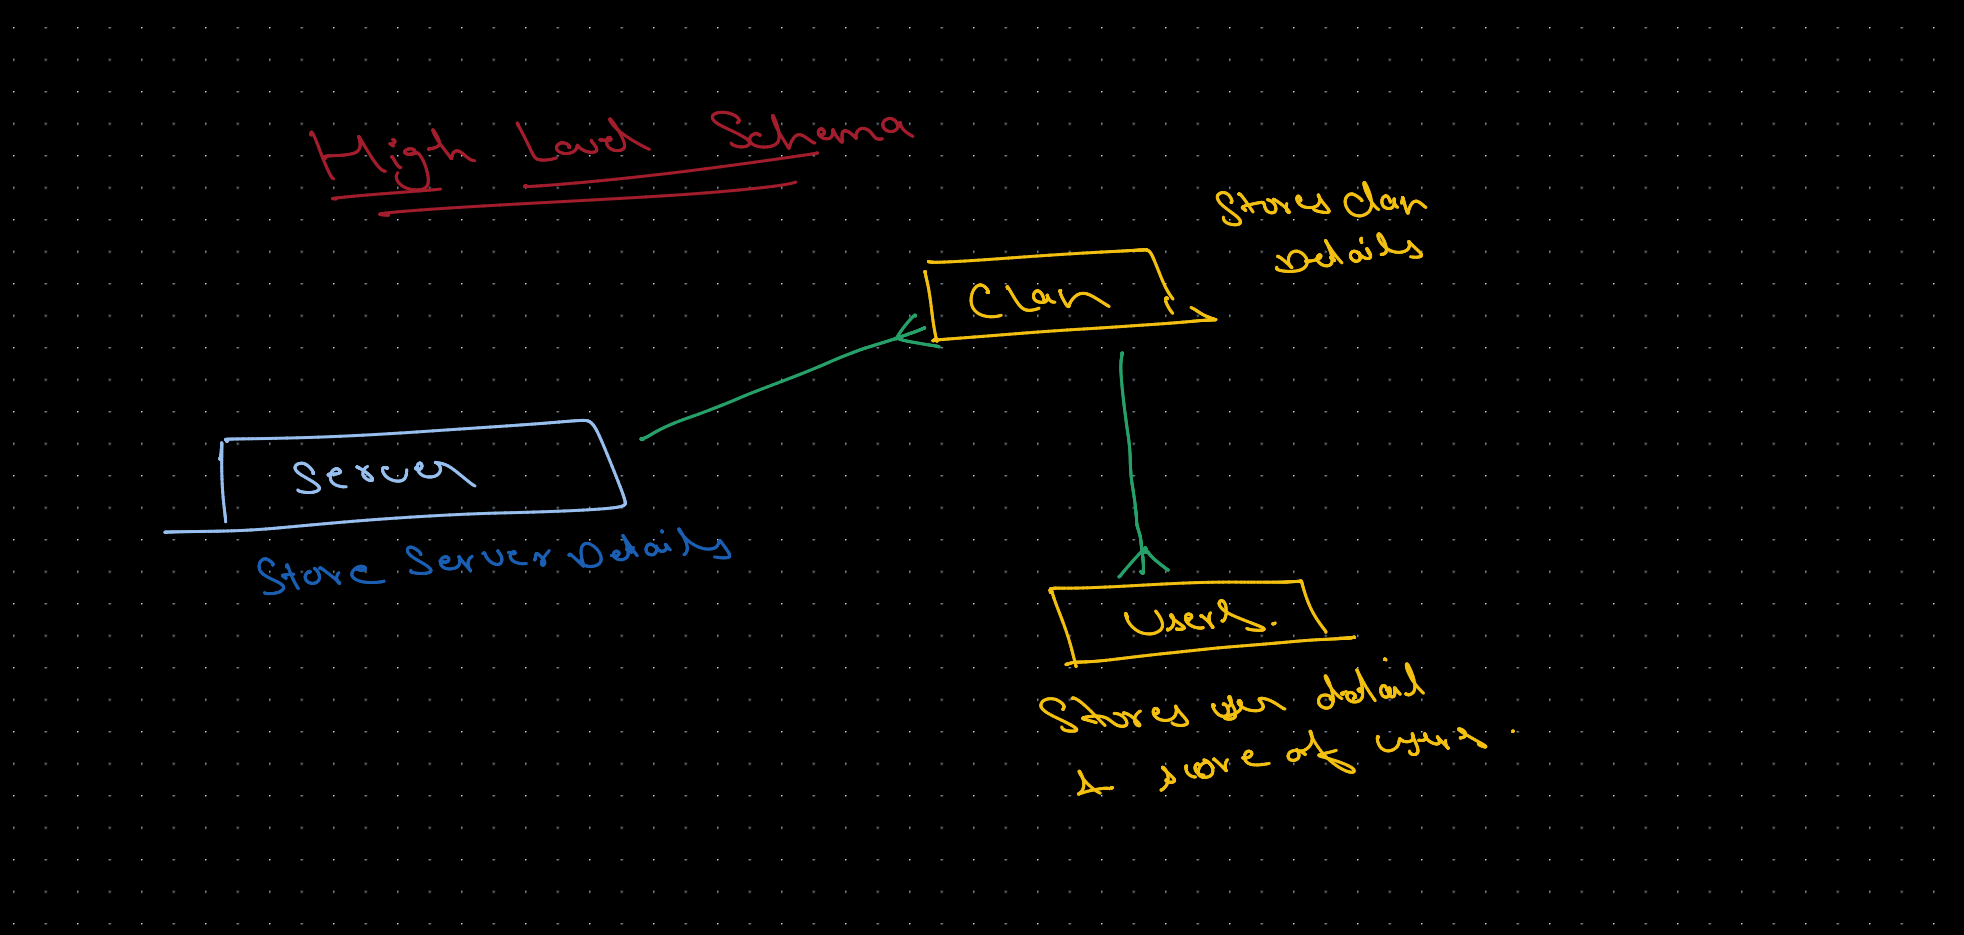 High Level Schema
Stores clan
Details
Clan
Server
Store Server Details
Users.
Stores user detail
& score of users.